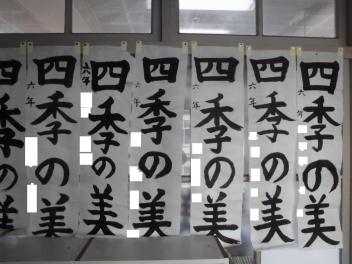 四季の美
六年
四季の美
六年
四季の美
六年
四季の美
六年
四季の美
六年
四季の美
六年
四季の美